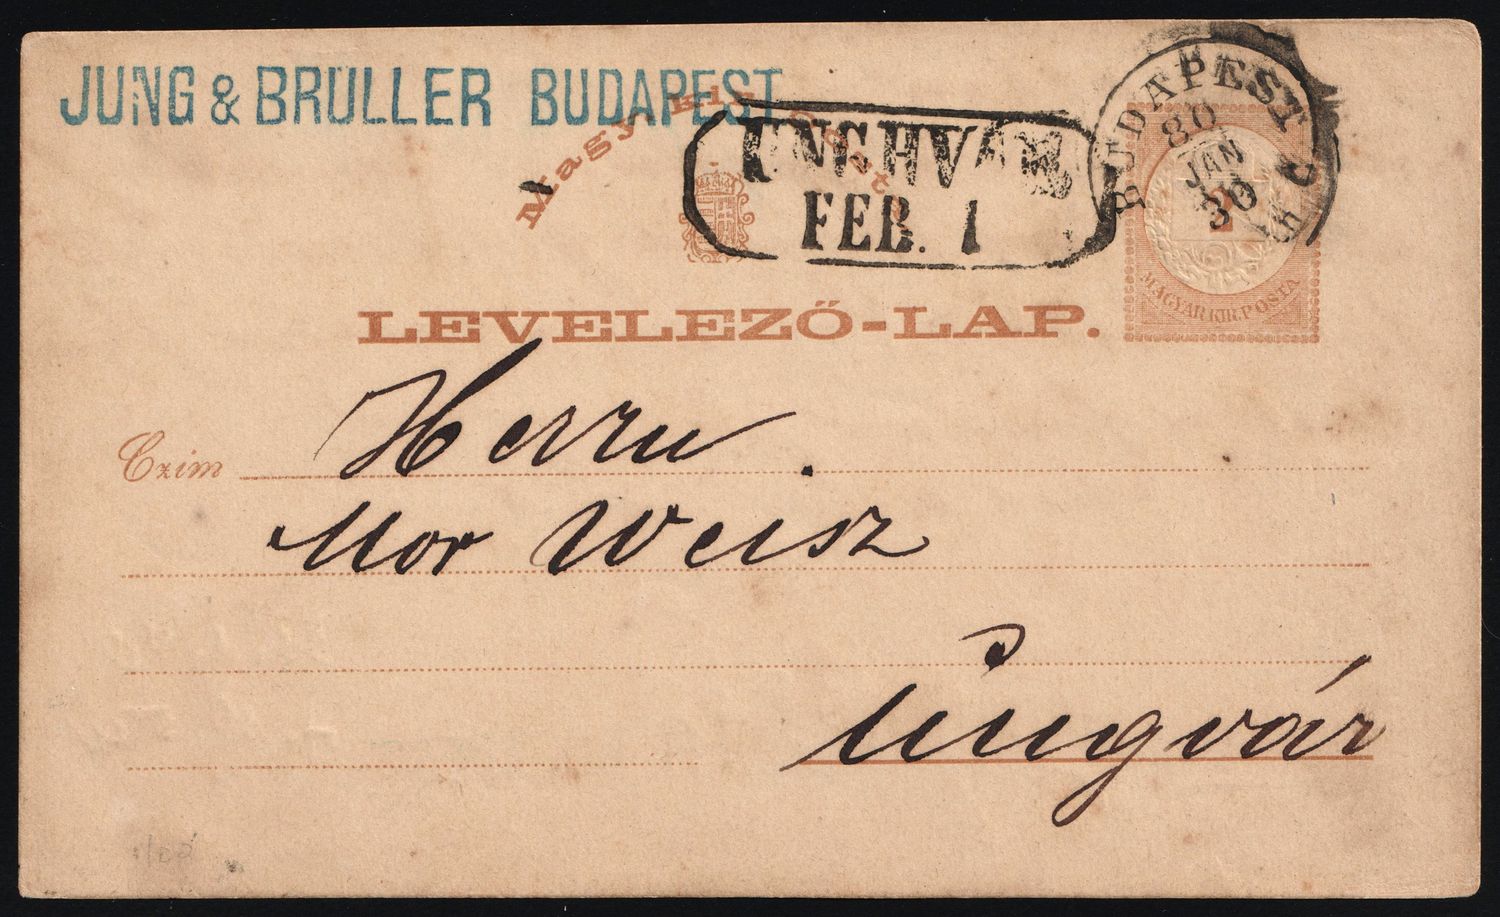 JUNG & BRÜLLER BUDAPEST
Magy. kir. posta
UNGHVÁR
FEB. 1
BUDAPEST
80
JAN
30
2
MAGYAR KIR. POSTA
LEVELEZŐ-LAP.
Czim Herrn
Mor Weisz
Ungvár